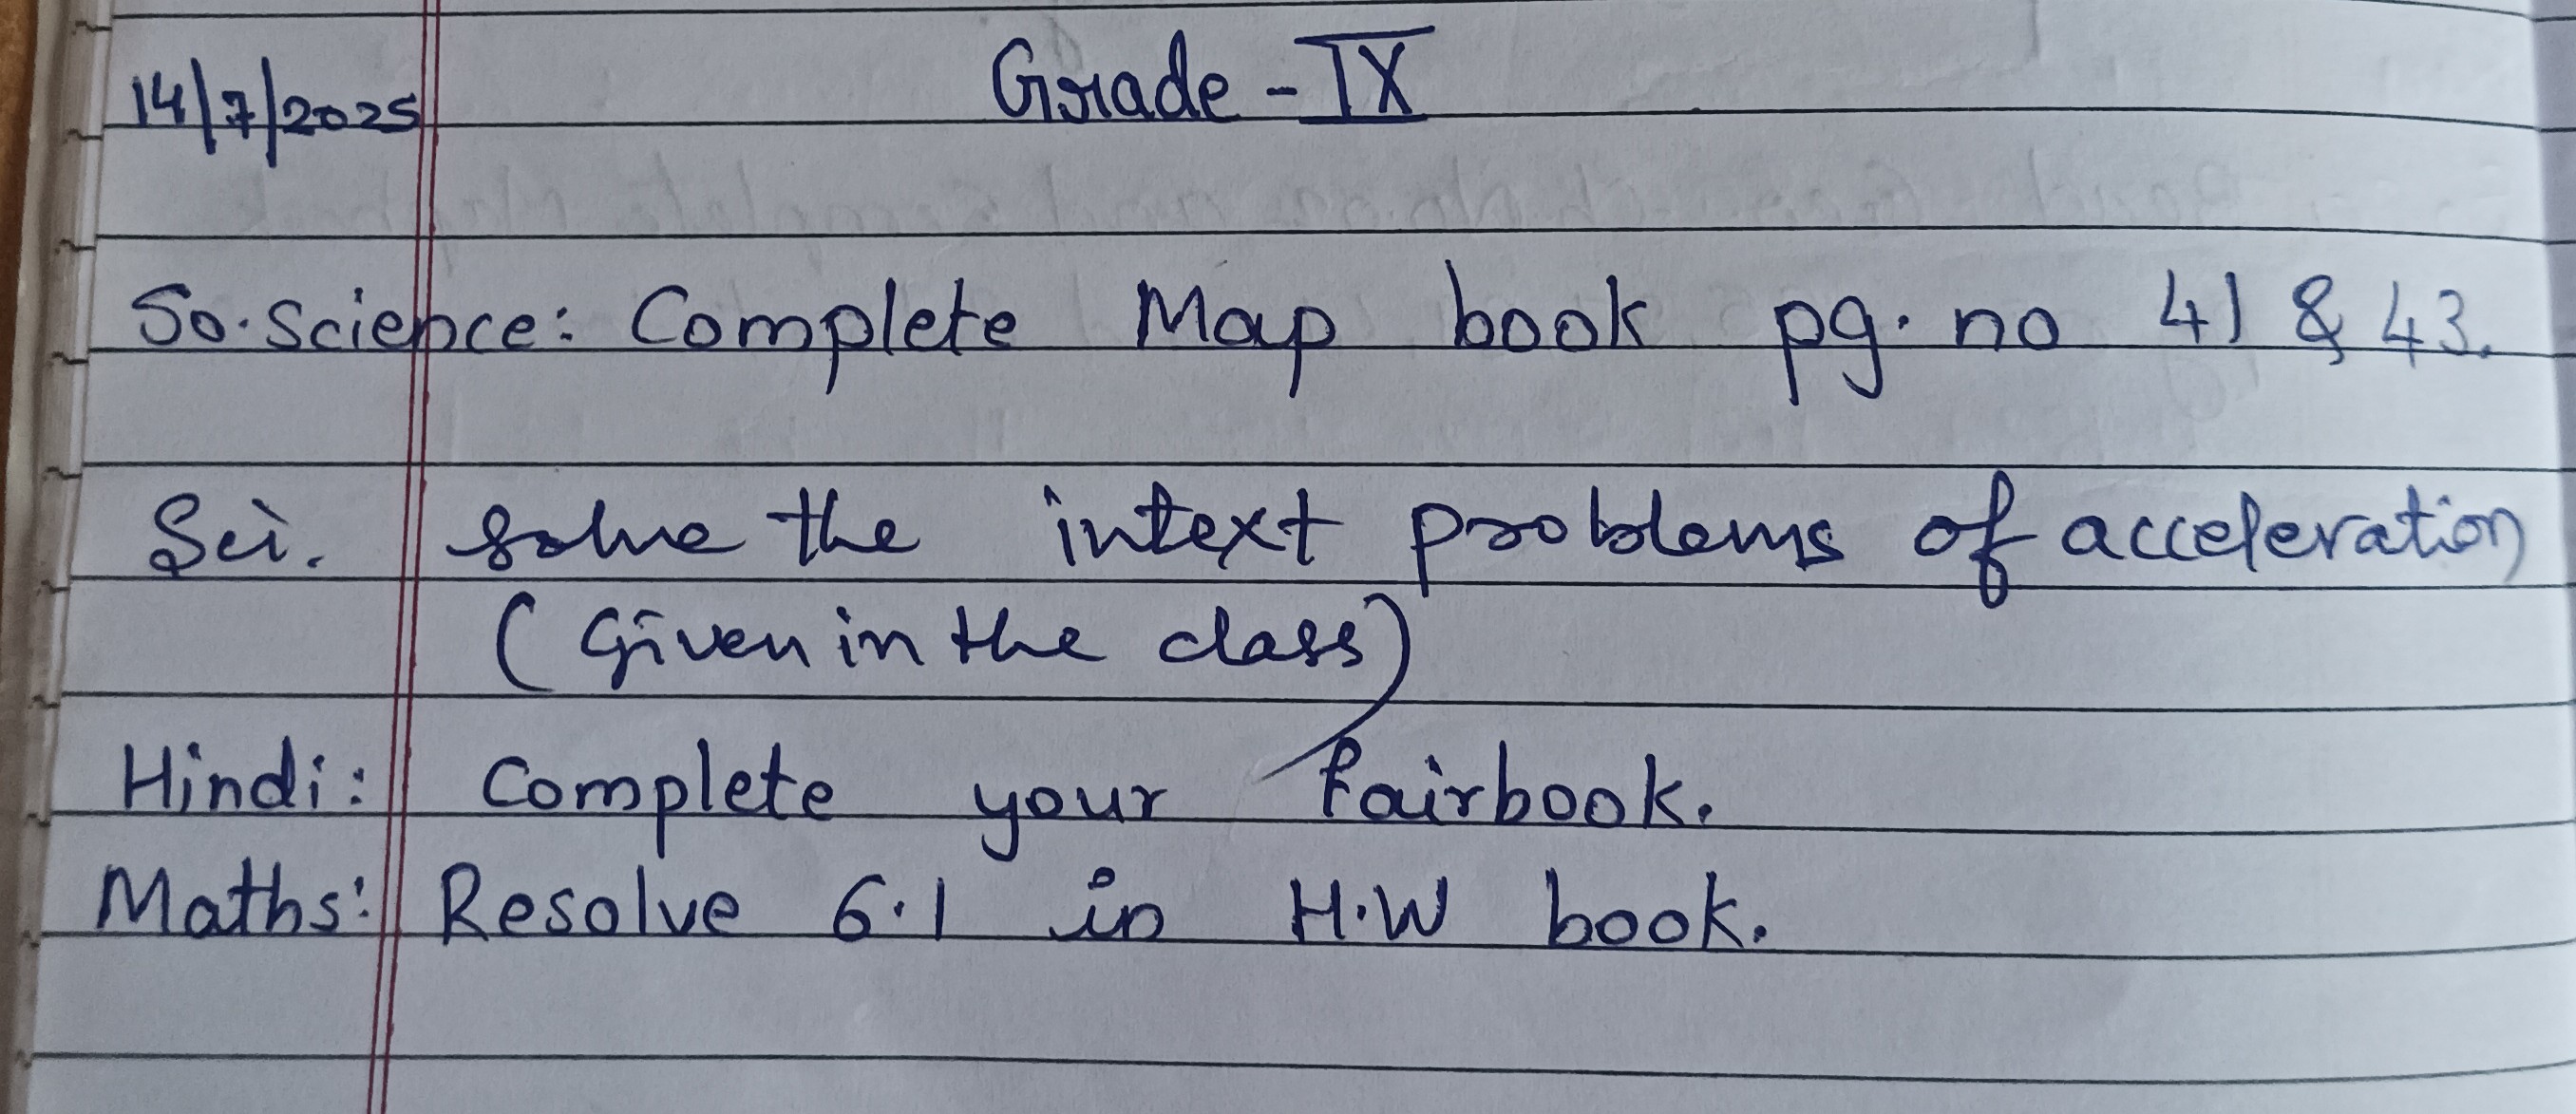 14/7/2025 Grade - IX
So.Science: Complete Map book pg. no 41 & 43.
Sci. Solve the intext problems of acceleration
(Given in the class)
Hindi: Complete your fairbook.
Maths: Resolve 6.1 in H.W book.